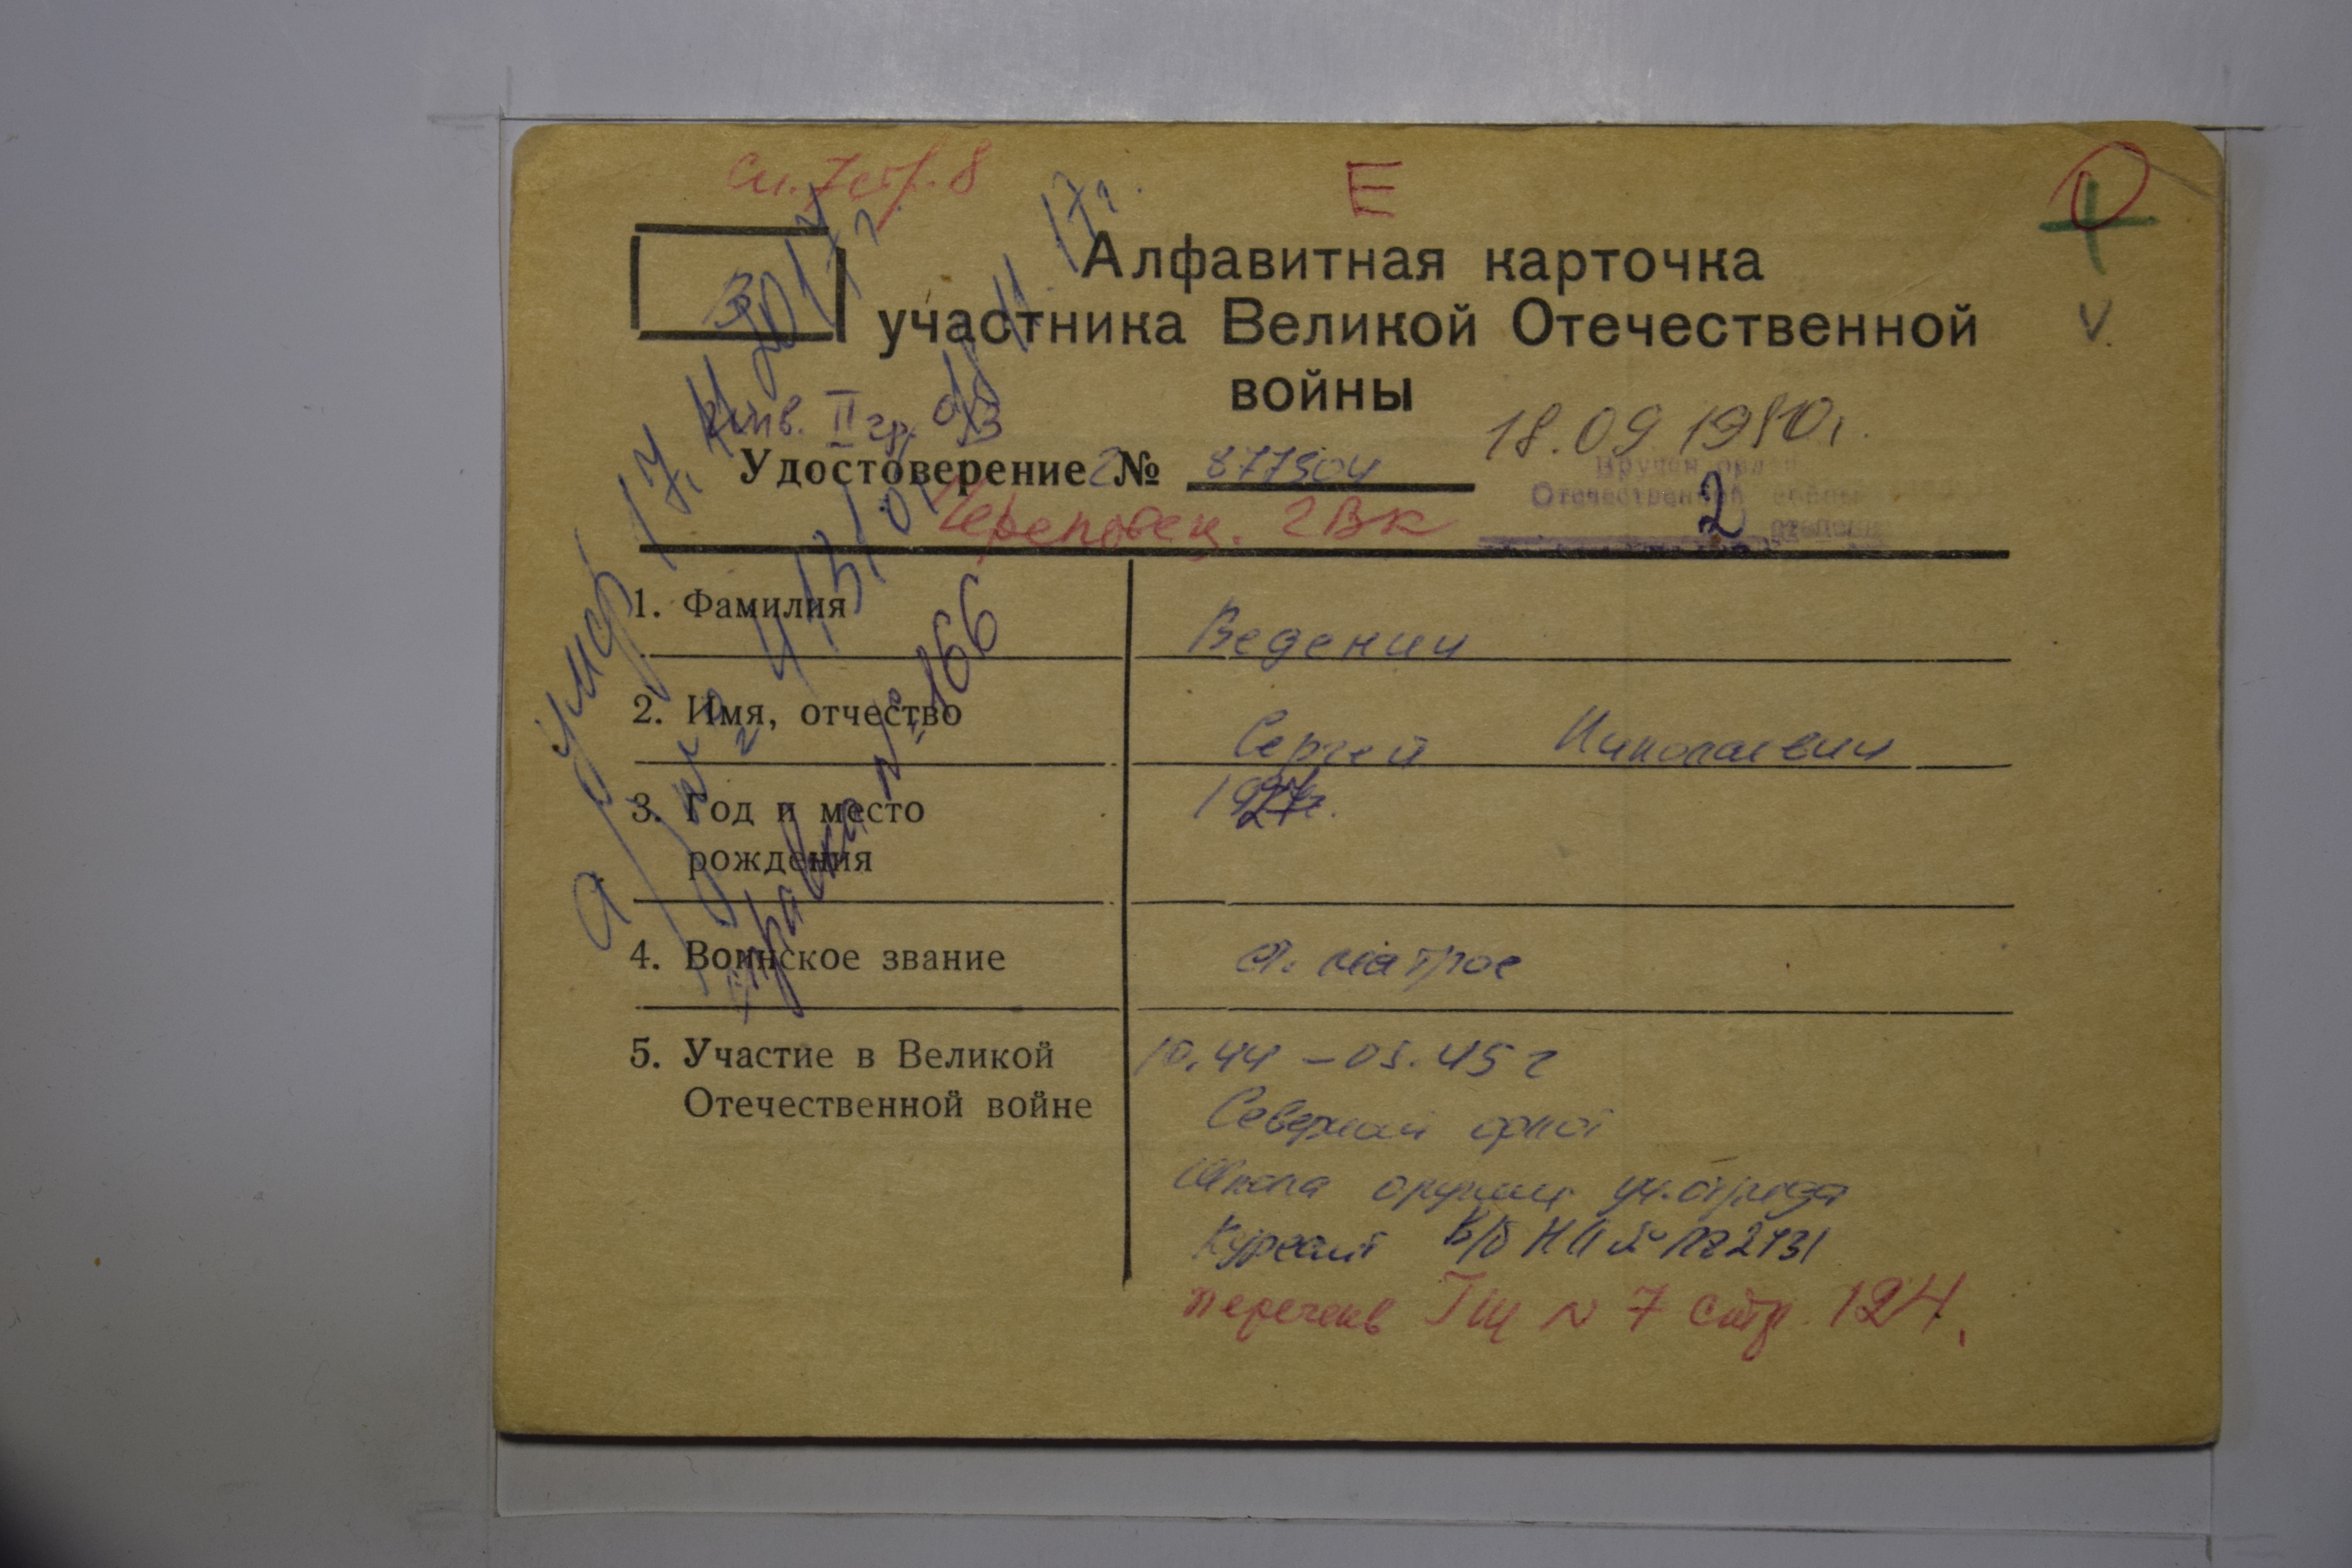 Е
Алфавитная карточка
участника Великой Отечественной
войны
инв. II гр.
18.09.1980г.
Удостоверение № 877504
Вручен орден
Отечественной войны
2 степени
Череповец. ГВК
1. Фамилия
Веденин
2. Имя, отчество
Сергей Николаевич
3. Год и место
рождения
1927г.
4. Воинское звание
ст. матрос
5. Участие в Великой
Отечественной войне
10.44 – 05.45 г
Северный флот
Школа оружия уч. отряда
Курсант В/б НП №
перечень ГШ N 7 стр. 124.
умер 17.11.2017г.
справка № 166